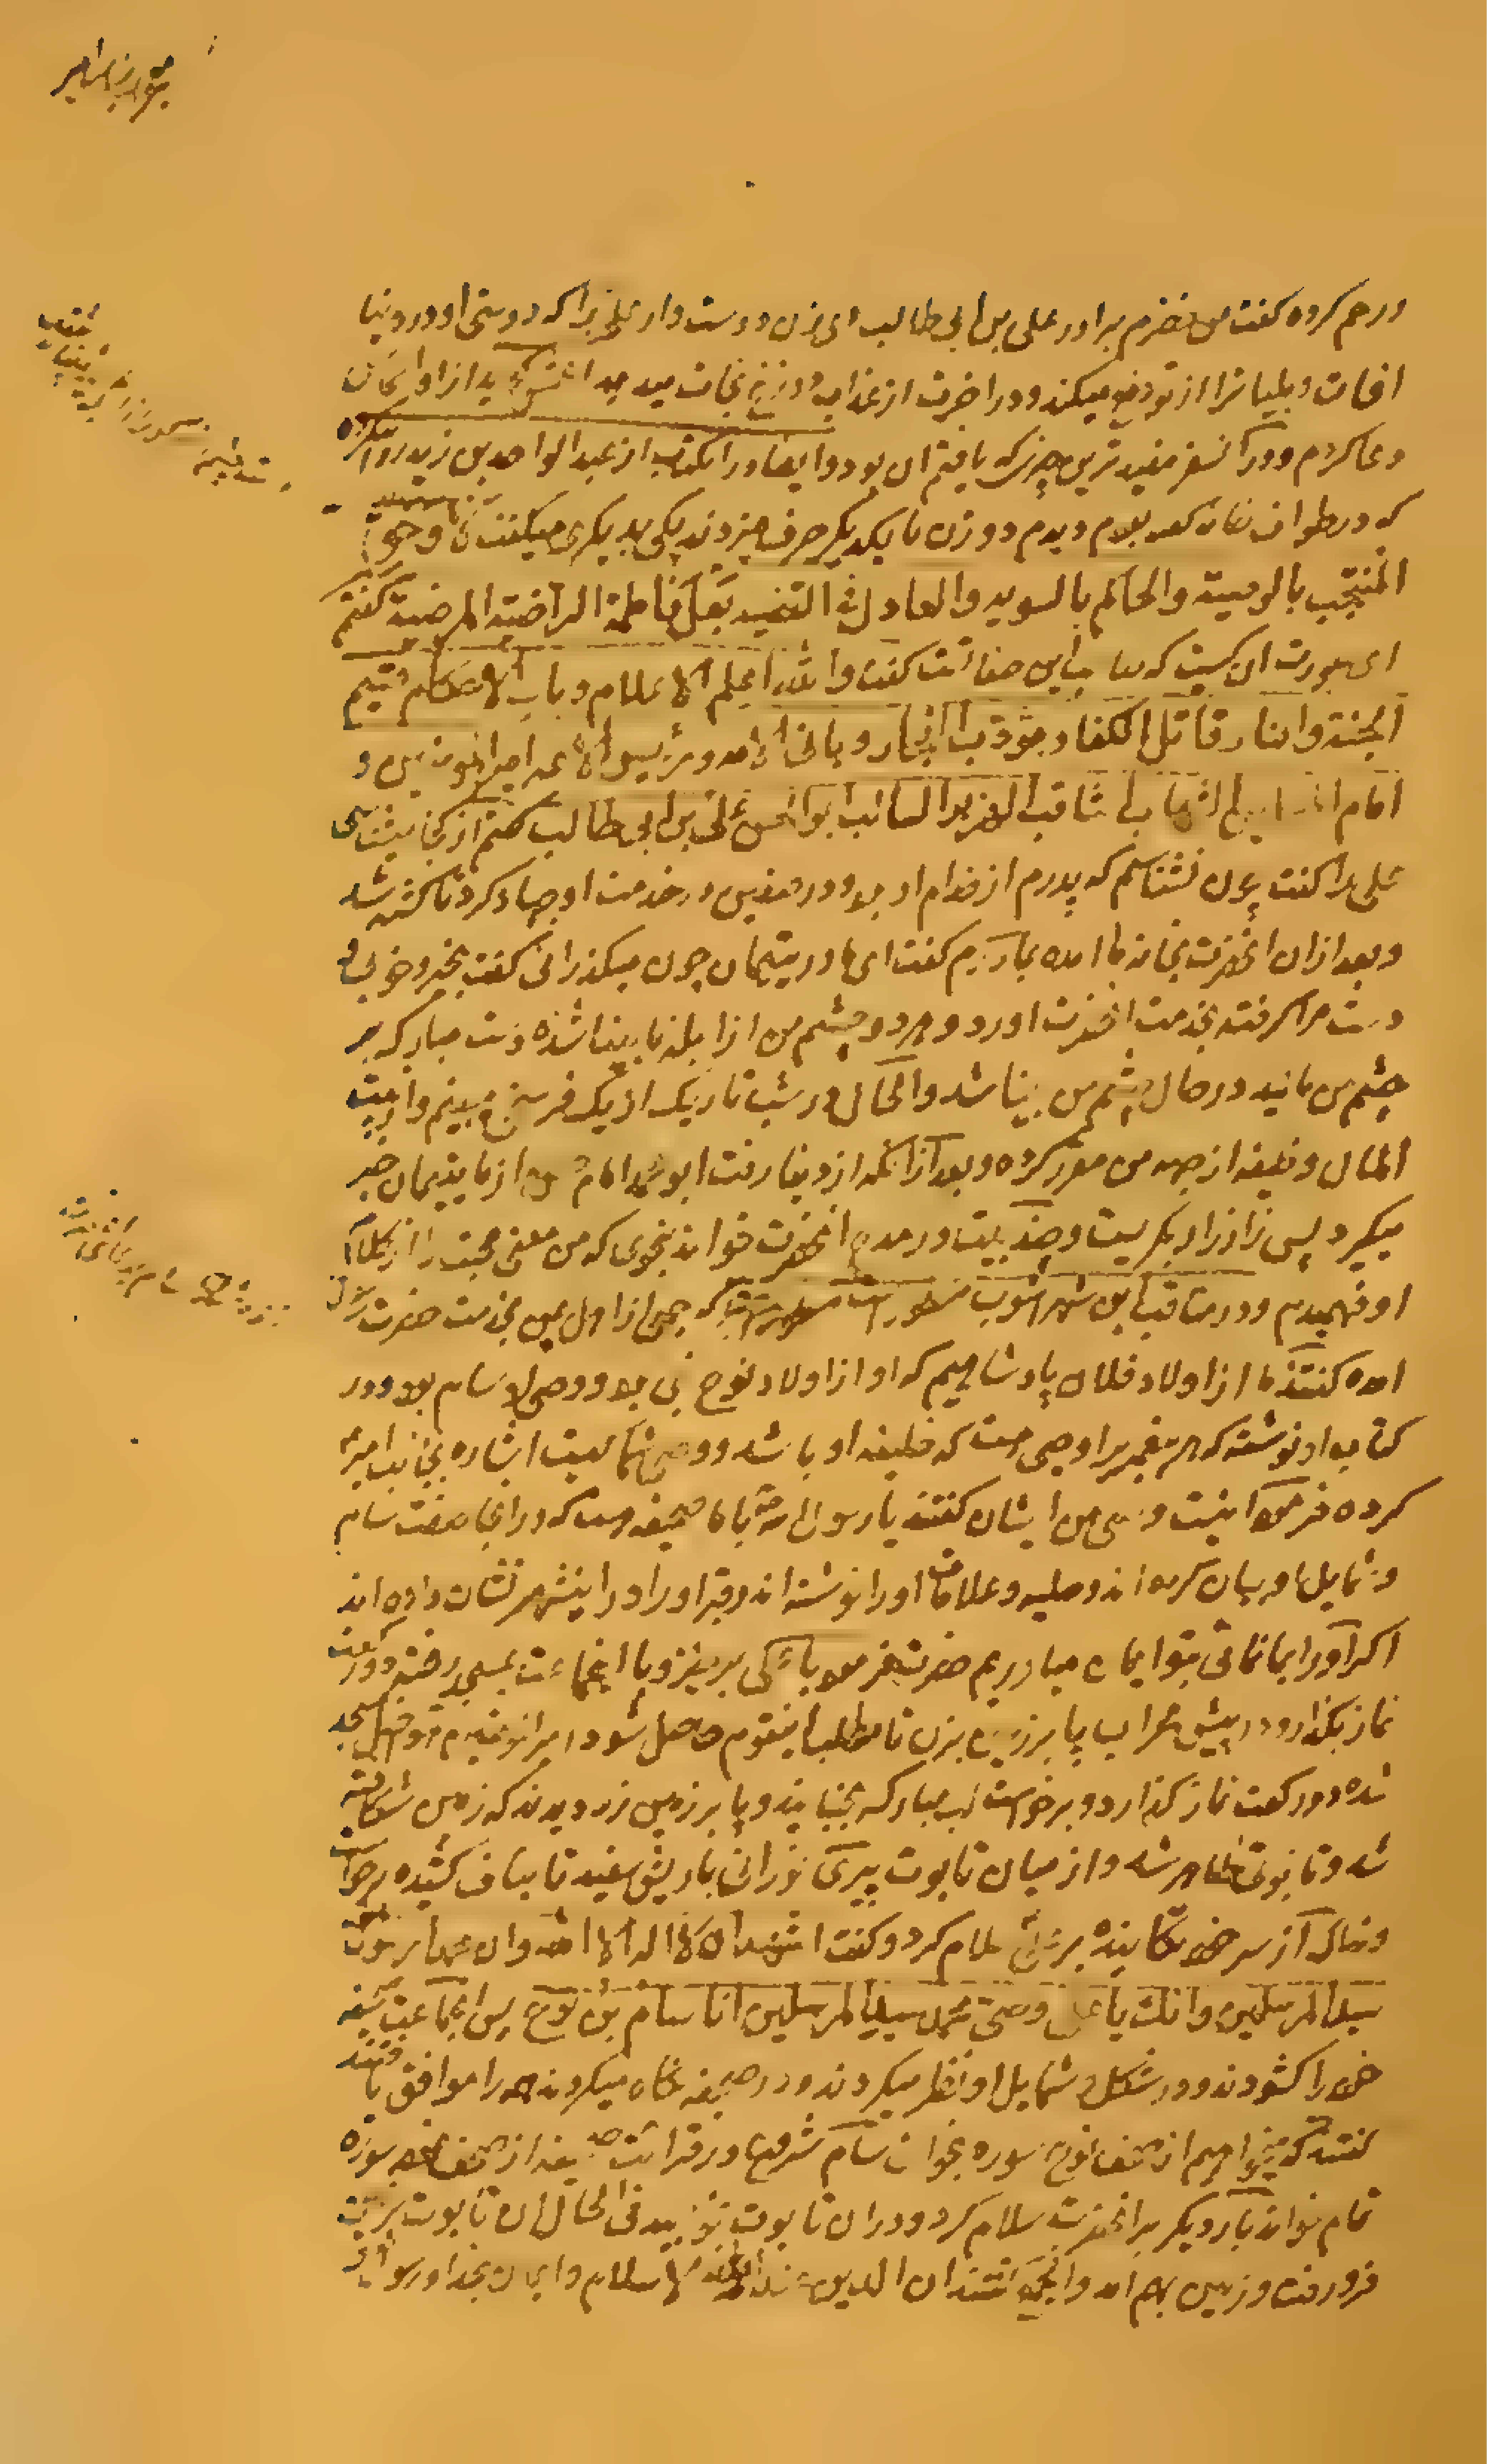 ورحم کرده کفت من خضرم برادر علی بن ابی طالب ای زن دوست دار علی را که دوستی او در دنیا
افات و بلیات را از تو دفع میکند و در اخرت از عذاب دوزخ نجات میدهد
دعا کردم و در انسفر مفید ترین چیزی که یافتم ان بود و ایضا در انکتاب از عبد الواحد بن زید روایتکرده
که در طواف خانه کعبه بودم دیدم دو زن با یکدیکر حرف میزدند یکی بدیکری میکفت لا و حق
المنتجب بالوصیة والحاکم بالسویه والعادل فی القضیه بعل فاطمة الراضیة المرضیة کفتم
ای عورت ان کیست که صاحب این صفاتست کفت والله اعلم الاعلام و باب الاحکام قسیم
الجنة والنار قاتل الکفار و ربانی الامه و رئیس الائمه امیر المؤمنین و
امام المسلمین الشهاب الثاقب ابو الحسن علی بن ابی طالب کفتم از کجا میشناسی
علی را کفت چون نشناسم که پدرم از خدام او بود در صفین در خدمت او جهاد کرد تا کشته شد
و بعد از ان انحضرت بخانه ما امده بمادرم کفت ای مادر یتیمان چون میکذرانی کفت بخیر و خوبی و
دست مرا کرفته بخدمت انحضرت اورد و هر دو چشم من از ابله نابینا شده دست مبارکه بر
چشم من مالید در حال چشم من بینا شد والحال در شب تاریک از یک فرسخ میبینم و از بیت
المال وظیفه از جهه من مقرر کرده و بعد از انکه از دنیا رفت ابو محمد امام حسن از ما یتیمان خبر
میکرد پس زار زار بکریست و چند بیت در مدح انحضرت خواند بنحوی که من معنی محبت را از کلام
او فهمیدم و در مناقب ابن شهر اشوب مسطورست که جمعی از اهل یمن بخدمت حضرت رسول
امده کفتند ما از اولاد فلان پادشاهیم که او از اولاد نوح نبی بود و وصی او سام بود و در
کتاب او نوشته که هر پیغمبر را وصی هست که خلیفه او باشد و وصی شما کیست اشاره بجانب امیر
کرده فرمود اینست وصی من ایشان کفتند یا رسول الله با ما صحیفه هست که در انجا صفت سام
و شمایل او بیان کرده اند و حلیه و علامات او را نوشته اند و قبر او را در اینشهر نشان داده اند
اکر او را بما نمائی بتو ایمان میاوریم حضرت فرمود یا علی برخیز و با اینجماعت بمسجد رفته دو رکعت
نماز بکذار و در پیش محراب پا بر زمین بزن تا مطلب اینقوم حاصل شود امیرالمؤمنین متوجه مسجد
شده دو رکعت نماز کذارد و برخواست لب مبارکه بجنبانید و پا بر زمین زد دیدند که زمین شکافته
شد و تابوتی ظاهر شد و از میان تابوت پیری نورانی با ریش سفید تا بناف کشیده برخواست
و خاک از سر خود تکانیده بر علی سلام کرد و کفت اشهد ان لا اله الا الله وان محمدا رسوله
سید المرسلین وانک یا علی وصی محمد سید المرسلین انا سام بن نوح پس انجماعت صحیفه
خود را کشودند و در شکل و شمایل او نظر میکردند و در صحیفه نکاه میکردند همه را موافق یافتند
کفتند که میخواهیم از صحف نوح سوره بخوان سام شروع در قرائت صحیفه از صحف نموده سوره
تمام خواند بار دیکر بر انحضرت سلام کرد و در ان تابوت خوابید فی الحال ان تابوت بزمین
فرو رفت و زمین بهم امد و انجمع کفتند ان الدین عند الله الاسلام و ایمان بخدا و رسول او